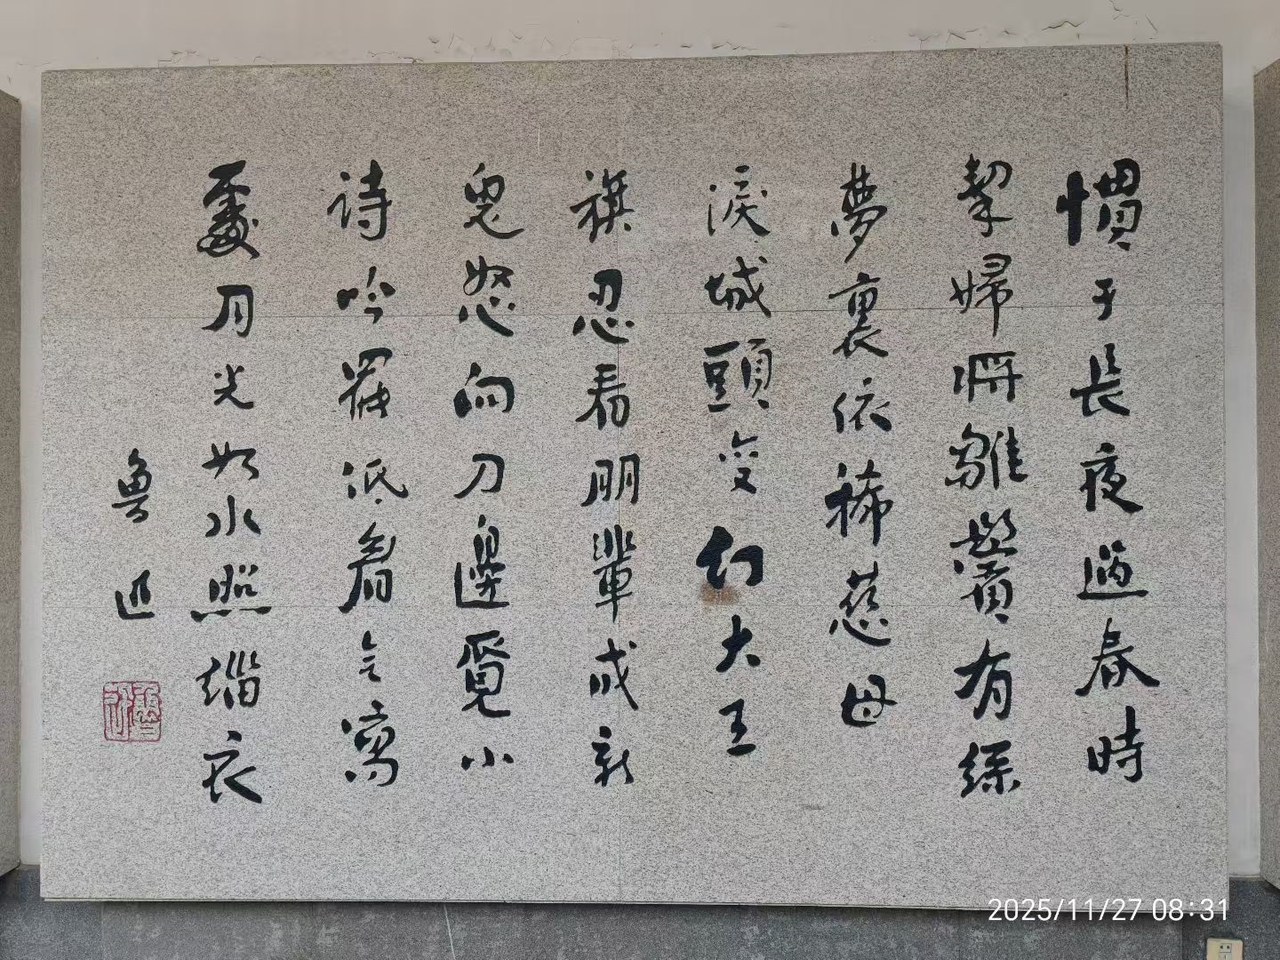 慣于長夜過春時
挈婦將雛鬢有絲
夢裏依稀慈母
淚城頭變幻大王
旗忍看朋輩成新
鬼怒向刀邊覓小
詩吟罷低眉無寫
處月光如水照緇衣
魯迅
魯迅
2025/11/27 08:31